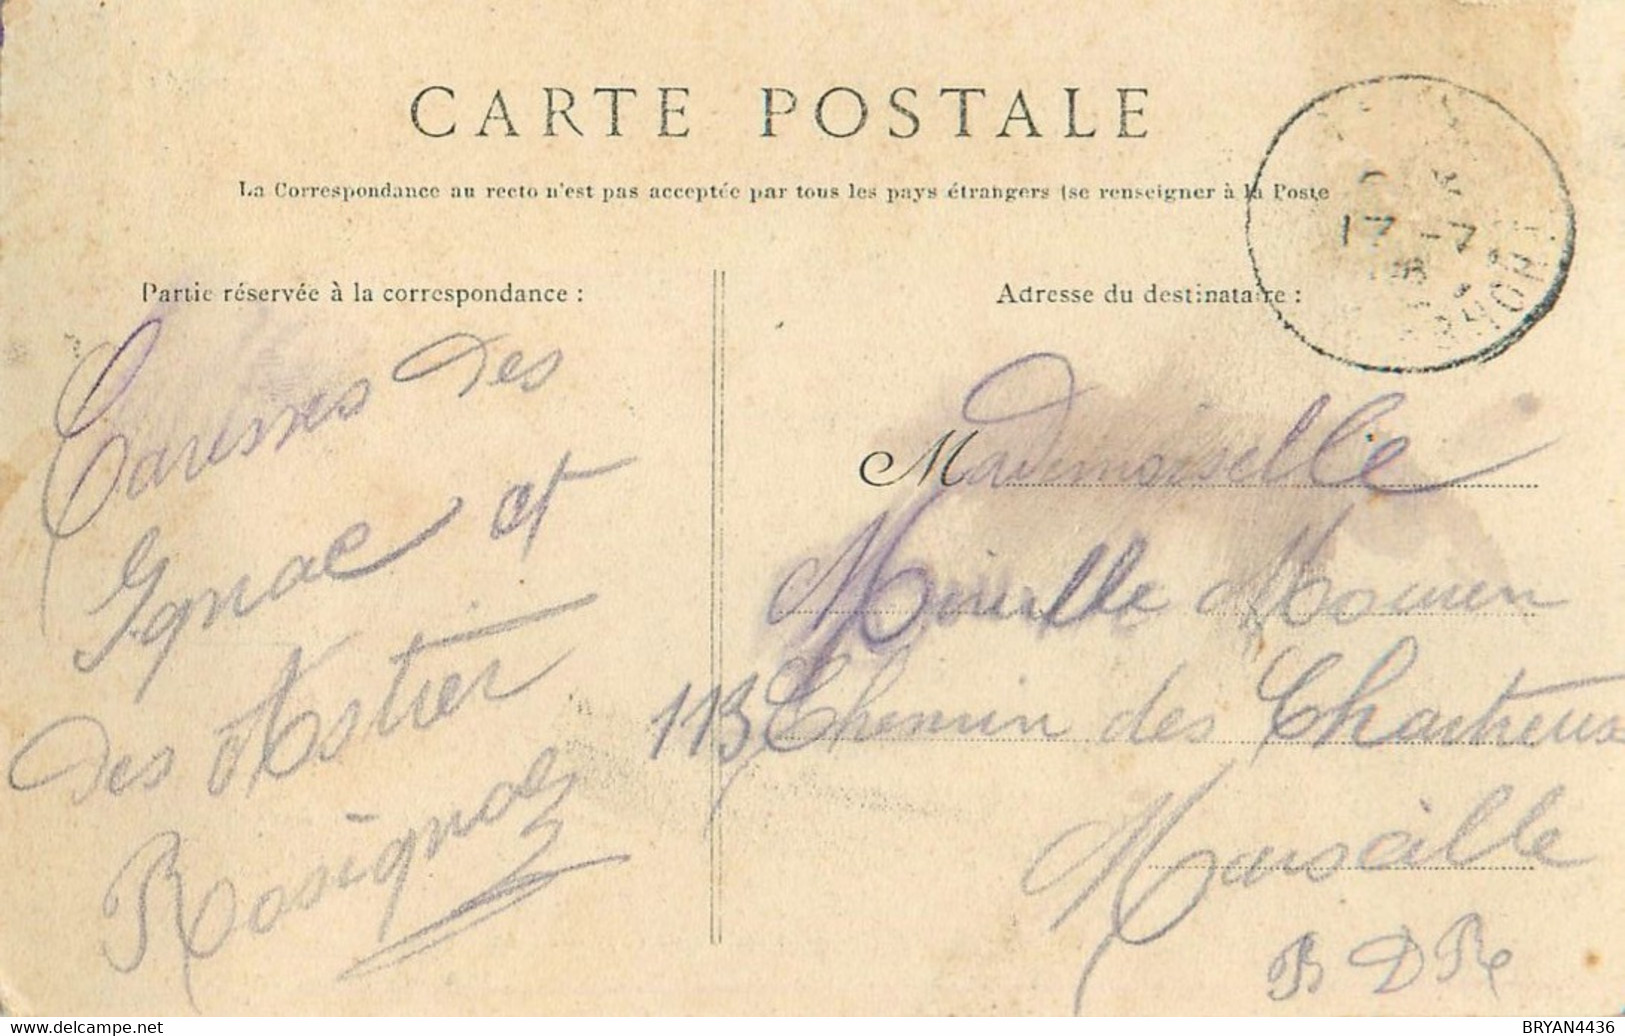 CARTE POSTALE
La Correspondance au recto n'est pas acceptée par tous les pays étrangers (se renseigner à la Poste
Partie réservée à la correspondance :
Caresses des
Ignace et
des Astier
Rosignol
Adresse du destinataire :
Mademoiselle
Mireille Mouren
113 Chemin des Chartreux
Marseille
B D R
17 -7
RHONE
delcampe.net
BRYAN4436